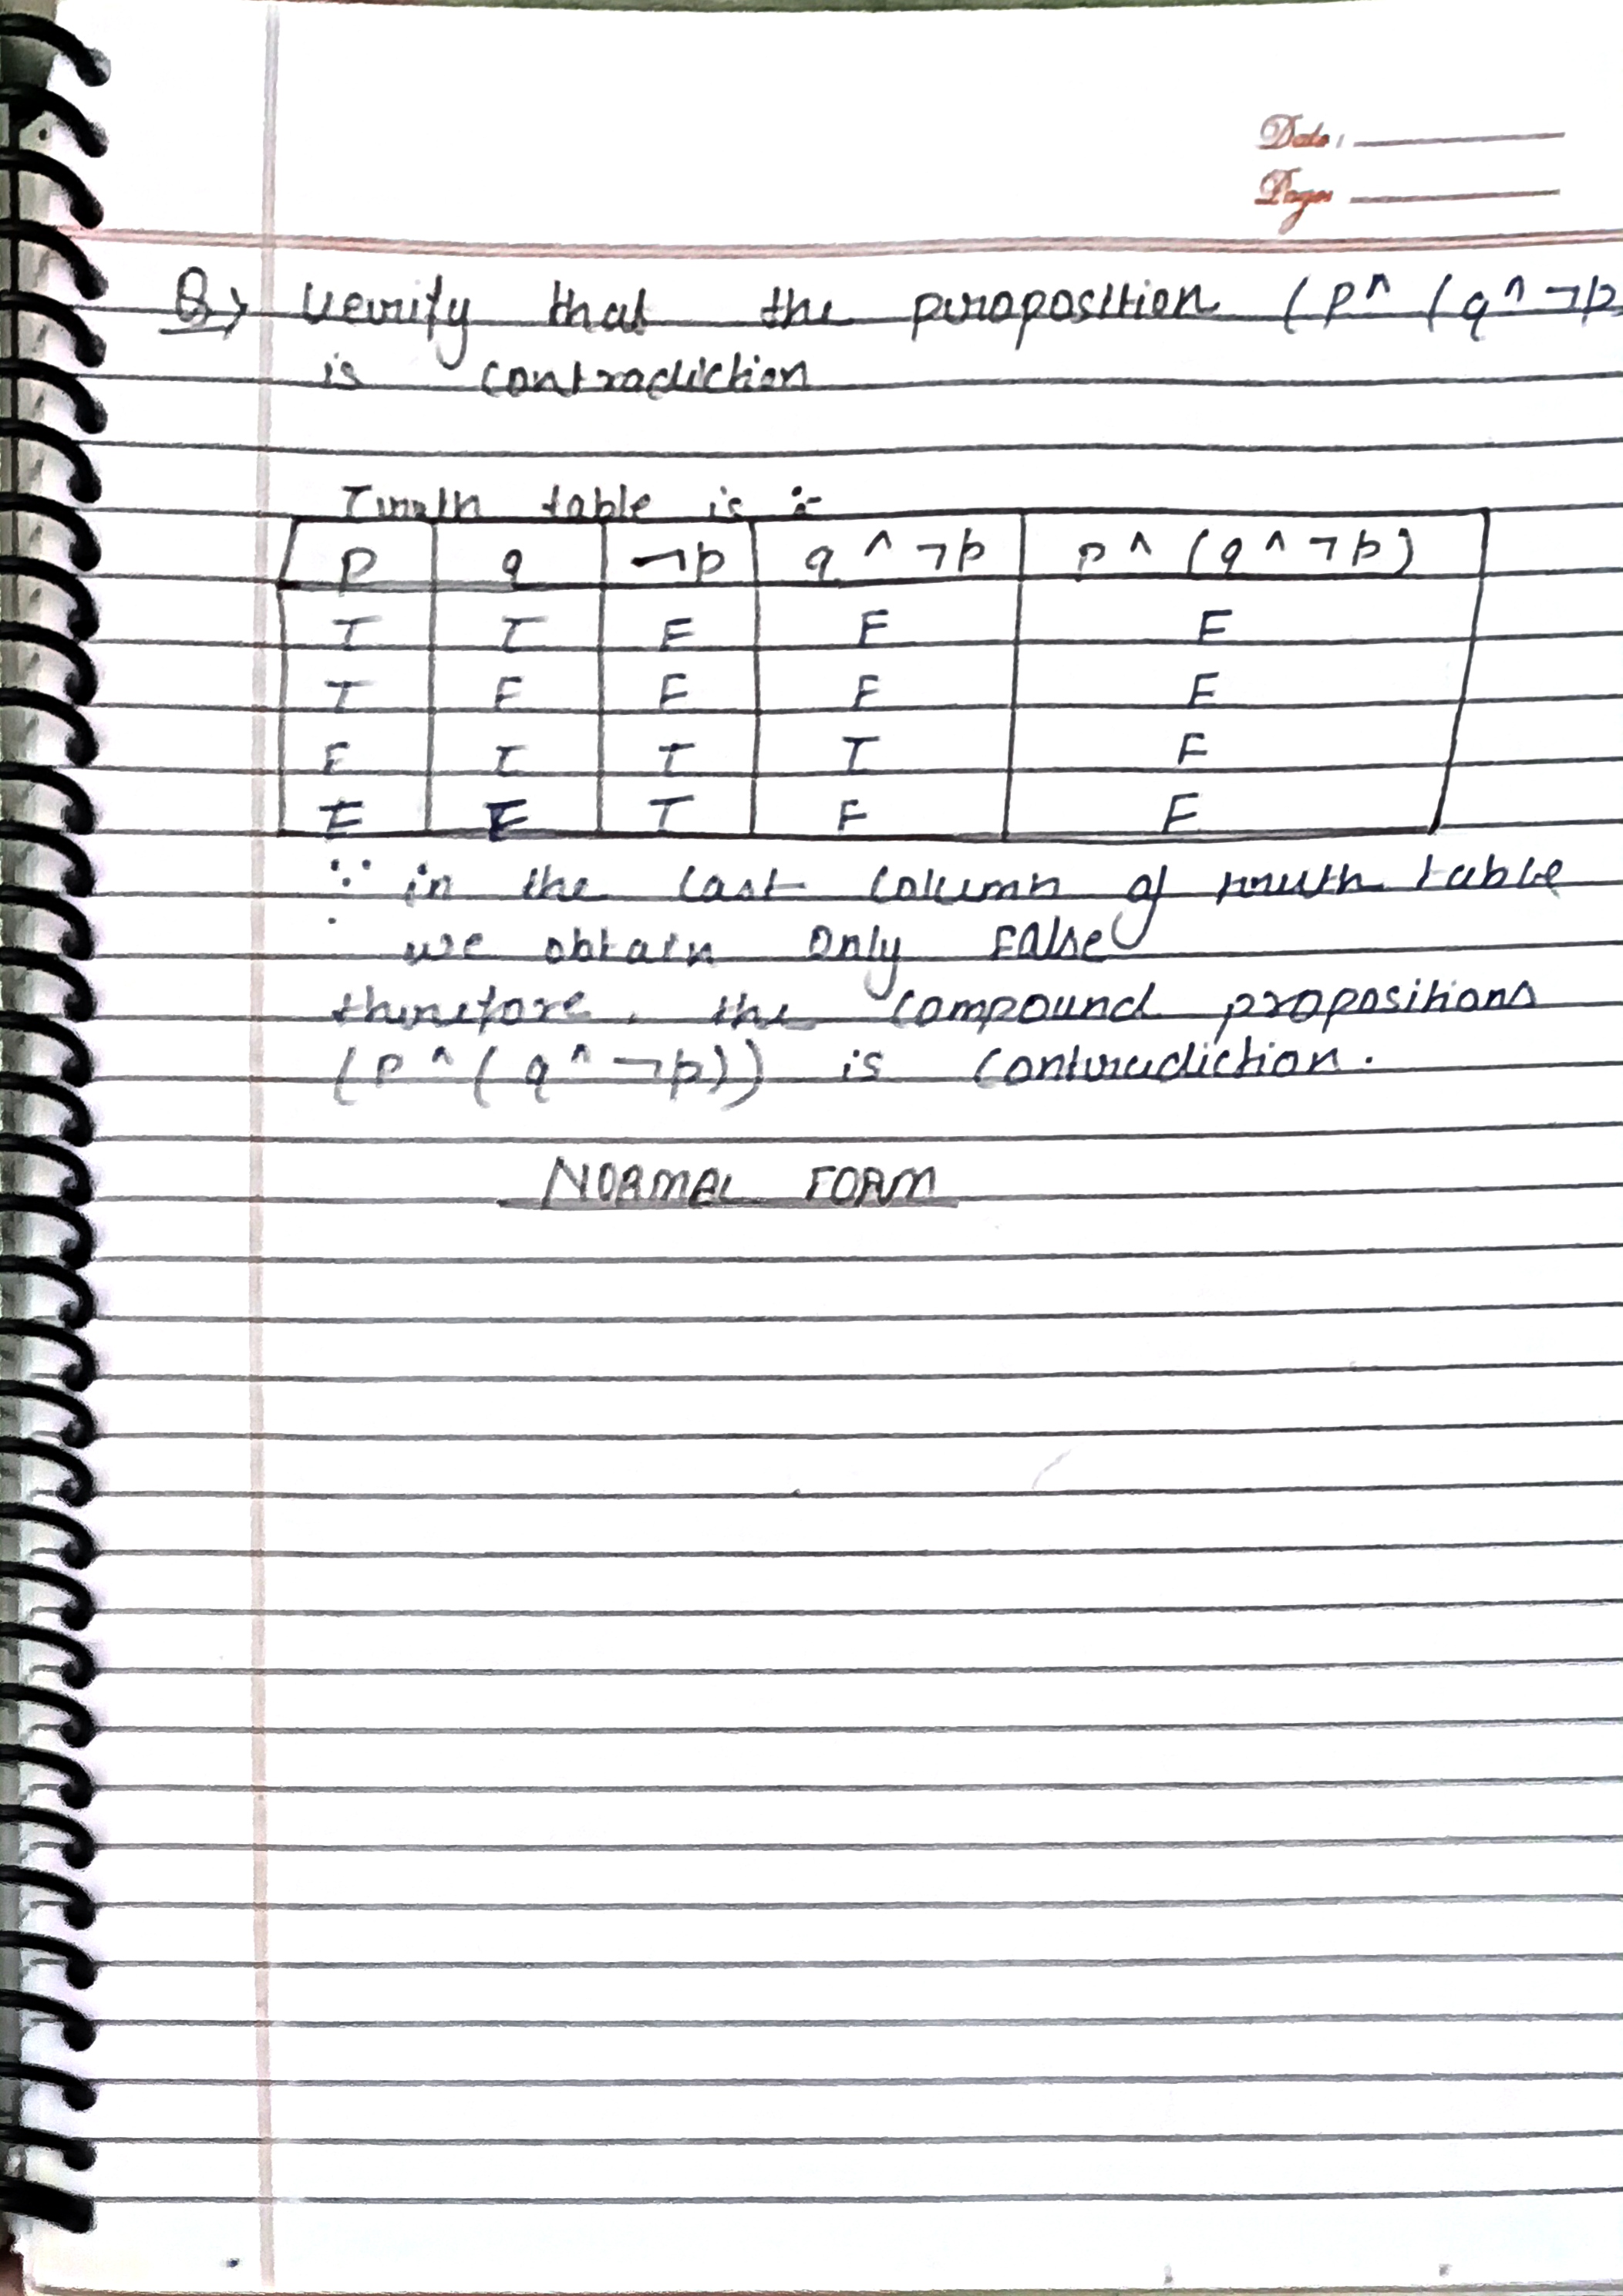 Date:
Page:
Q) Verify that the proposition (p ^ (q ^ ¬p
is contradiction
Truth table is :-
p q ¬p q ^ ¬p p ^ (q ^ ¬p)
T T F F F
T F F F F
F T T T F
F F T F F
∵ in the last column of truth table
we obtain only False
therefore, the compound propositions
(p ^ (q ^ ¬p)) is contradiction.
NORMAL FORM